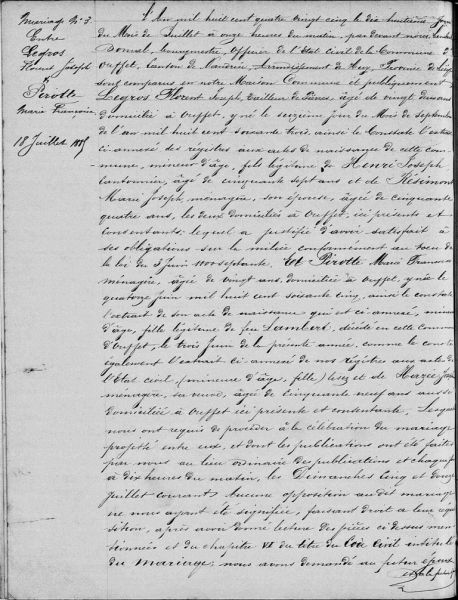 Mariage N° 3.
Entre
Legros
Florent Joseph
&
Pirotte
Marie Françoise
18 Juillet 1885
L'an mil huit cent quatre vingt cinq le dix huitième jour
du Mois de Juillet à onze heures du matin, par devant nous,
bourgmestre, Officier de l'Etat Civil de la Commune d'
Ouffet, Canton de Nandrin, Arrondissement de Huy, Province de Liége
sont comparus en notre Maison Commune et publiquement
Legros Florent Joseph, tailleur de pierres, âgé de vingt deux ans
domicilié à Ouffet, y né le seizième jour du Mois de Septembre
de l'an mil huit cent soixante trois, ainsi le Constate l'extrait
ci annexé des régistres aux actes de naissance de cette com-
mune, mineur d'âge, fils légitime de Henri Joseph
cantonnier, âgé de cinquante sept ans et de Résimont
Marie Joseph, ménagère, son épouse, âgée de cinquante
quatre ans, les deux domiciliés à Ouffet, ici présents et
Consentants, lequel a justifié d'avoir satisfait à
ses obligations sur la milice conformément au vœu de
la loi du 3 Juin 1800 septante. Et Pirotte Marie Françoise
ménagère, âgée de vingt ans, domiciliée à Ouffet, y née le
quatorze juin mil huit cent soixante cinq, ainsi le constate
l'extrait de son acte de naissance qui est ci annexé, mineure
d'âge, fille légitime de feu Lambert, décédé en cette Commune
d'Ouffet, le trois Juin de la présente année, comme le conste
également l'extrait ci annexé de nos régistres aux actes de
l'Etat civil (mineure d'âge, fille) lisez et de Hazée
ménagère, sa veuve, âgée de Cinquante neuf ans aussi
domiciliée à Ouffet ici présente et consentante. Lesquels
nous ont requis de procéder à la célébration du mariage
projeté entre eux, et dont les publications ont été faites
par nous au lieu ordinaire des publications et chaque fois
à dix heures du matin, les Dimanches Cinq et douze
Juillet courant. Aucune opposition au dit mariage
ne nous ayant été signifiée, faisant droit à leur réqui-
sition, après avoir donné lecture des pièces ci dessus men-
tionnées et du chapitre VI du titre du Code Civil intitulé
du Mariage; nous avons demandé au futur époux
et à la future